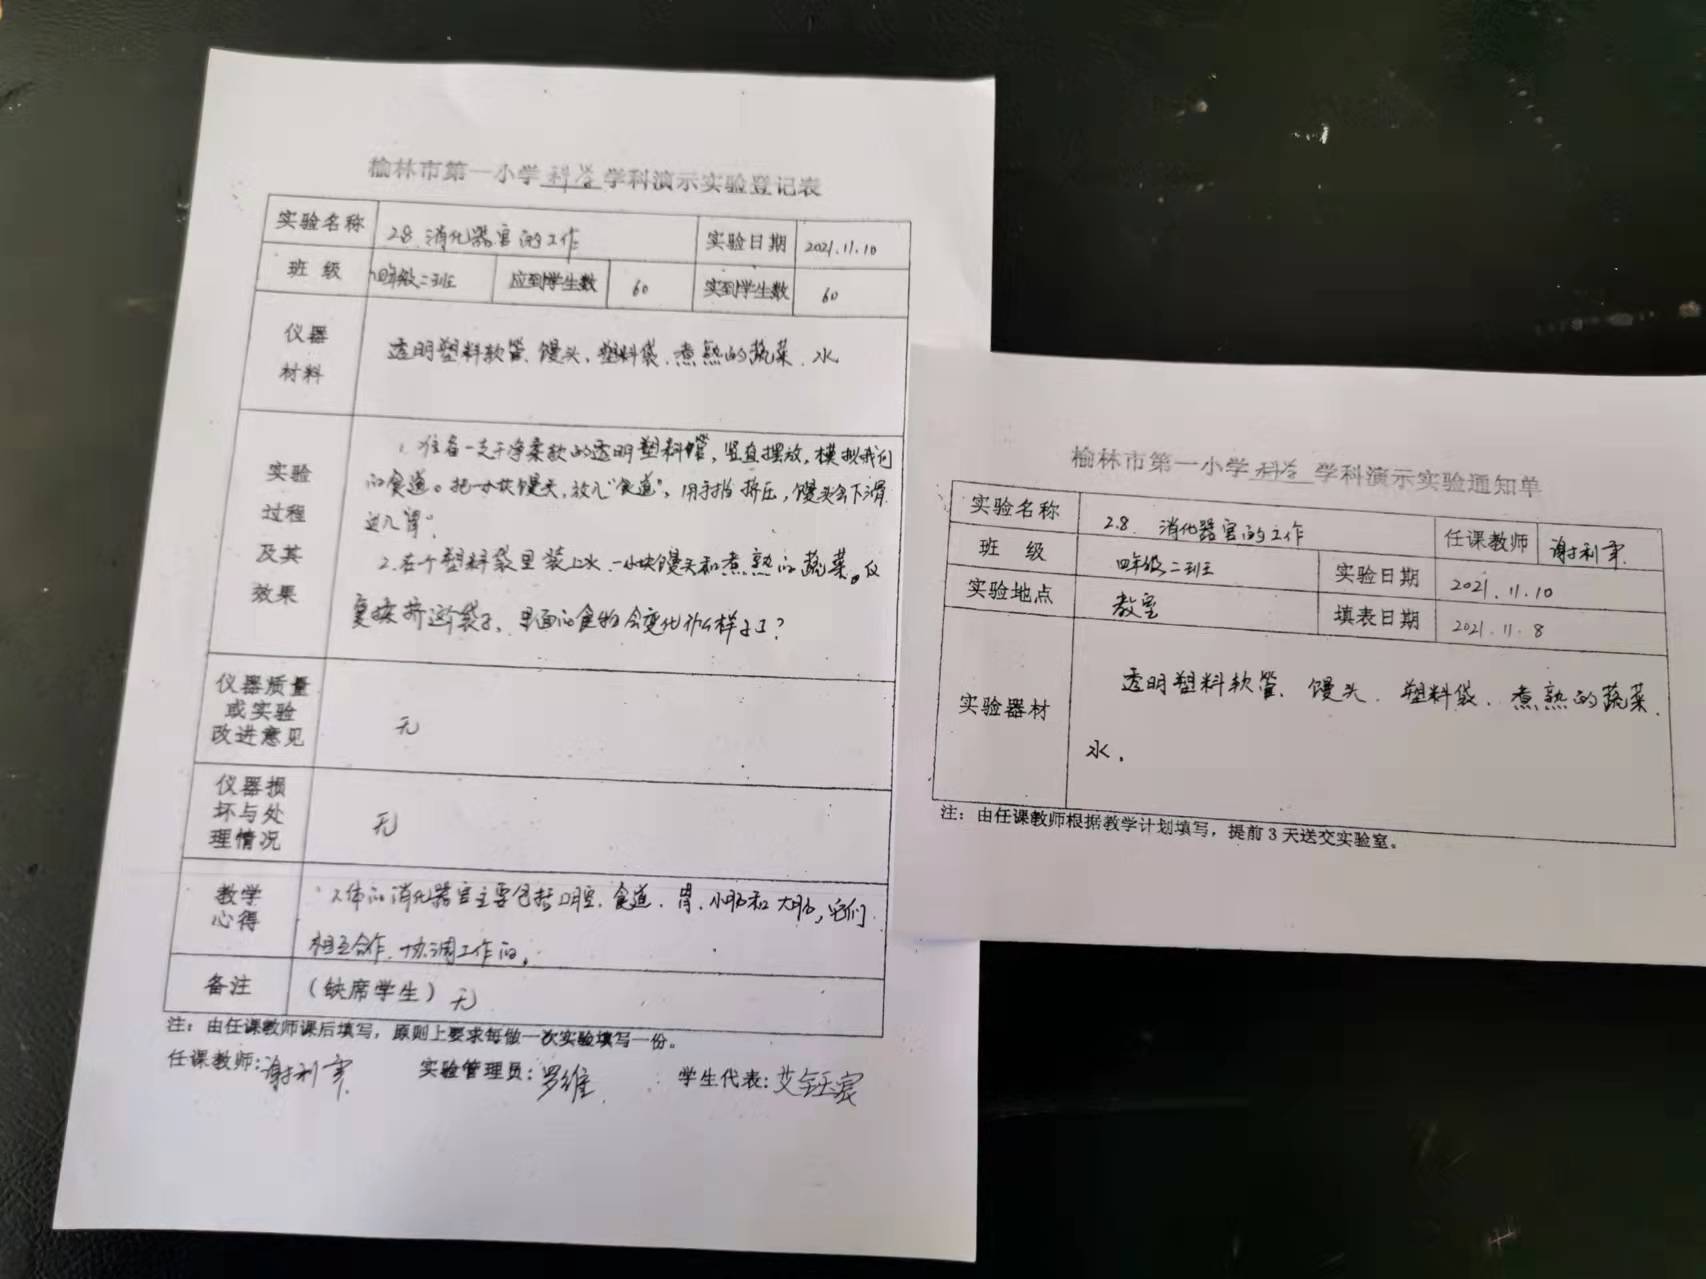 榆林市第一小学科学学科演示实验登记表
实验名称 2.8 消化器官的工作 实验日期 2021.11.10
班 级 四年级二班 应到学生数 60 实到学生数 60
仪器
材料
透明塑料软管、馒头、塑料袋、煮熟的蔬菜、水
实验
过程
及其
效果
1、准备一支干净柔软的透明塑料管,竖直摆放,模拟我们
的食道。把一小块馒头,放入“食道”,用手指挤压,馒头会下滑
进入胃。
2.在个塑料袋里装上水、一小块馒头和煮熟的蔬菜。反
复揉挤这个袋子,里面的食物会变化什么样子了?
仪器质量
或实验
改进意见
无
仪器损
坏与处
理情况
无
教学
心得
人体的消化器官主要包括口腔、食道、胃、小肠和大肠,它们
相互合作、协调工作的。
备注 (缺席学生) 无
注:由任课教师课后填写,原则上要求每做一次实验填写一份。
任课教师: 谢利 实验管理员:罗维 学生代表:艾钰宸
榆林市第一小学科学学科演示实验通知单
实验名称 2.8. 消化器官的工作 任课教师 谢利
班 级 四年级二班 实验日期 2021.11.10
实验地点 教室 填表日期 2021.11.8
实验器材
透明塑料软管、馒头、塑料袋、煮熟的蔬菜、
水.
注:由任课教师根据教学计划填写,提前3天送交实验室。